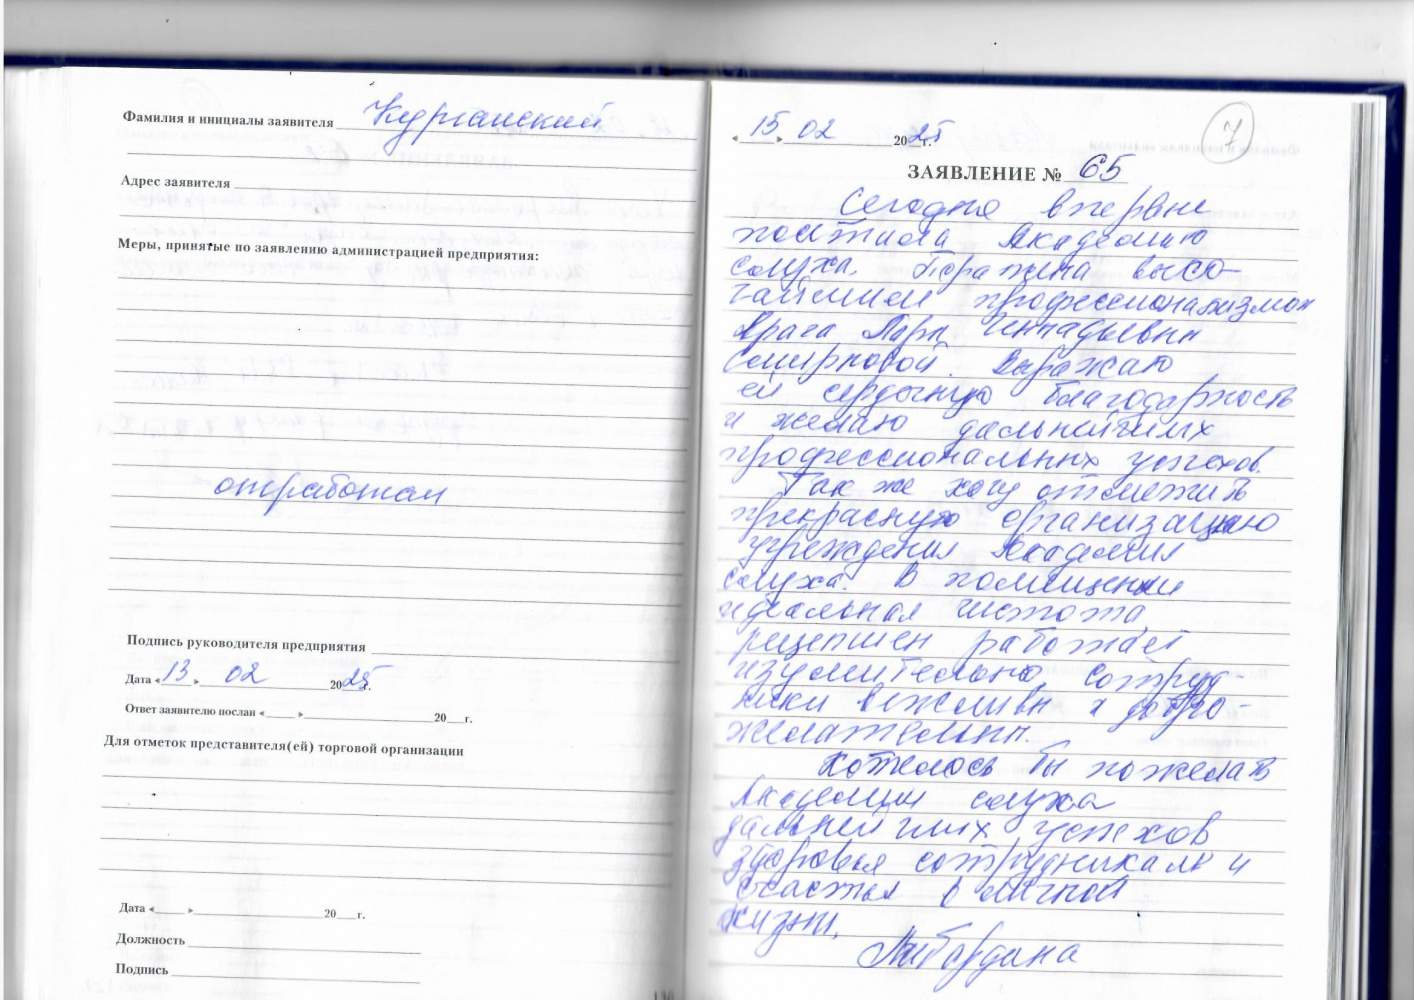 Фамилия и инициалы заявителя Курганский
Адрес заявителя
Меры, принятые по заявлению администрацией предприятия:
отработан
Подпись руководителя предприятия
Дата «13» 02 2025г.
Ответ заявителю послан « » 20 г.
Для отметок представителя(ей) торговой организации
Дата « » 20 г.
Должность
Подпись
7
«15» 02 2025г.
ЗАЯВЛЕНИЕ № 65
Сегодня впервые
посетила Академию
слуха. Поражена высо-
чайшим профессионализмом
врача Геннадьевны
Смирновой. Выражаю
ей сердечную благодарность
и желаю дальнейших
профессиональных успехов.
Так же хочу отметить
прекрасную организацию
учреждения Академия
слуха. В помещении
идеальная чистота,
рецепшен работает
изумительно, сотруд
ники вежливы и добро-
желательны.
Хотелось бы пожелать
Академии слуха
дальнейших успехов
здоровья сотрудникам и
счастья в личной
жизни.